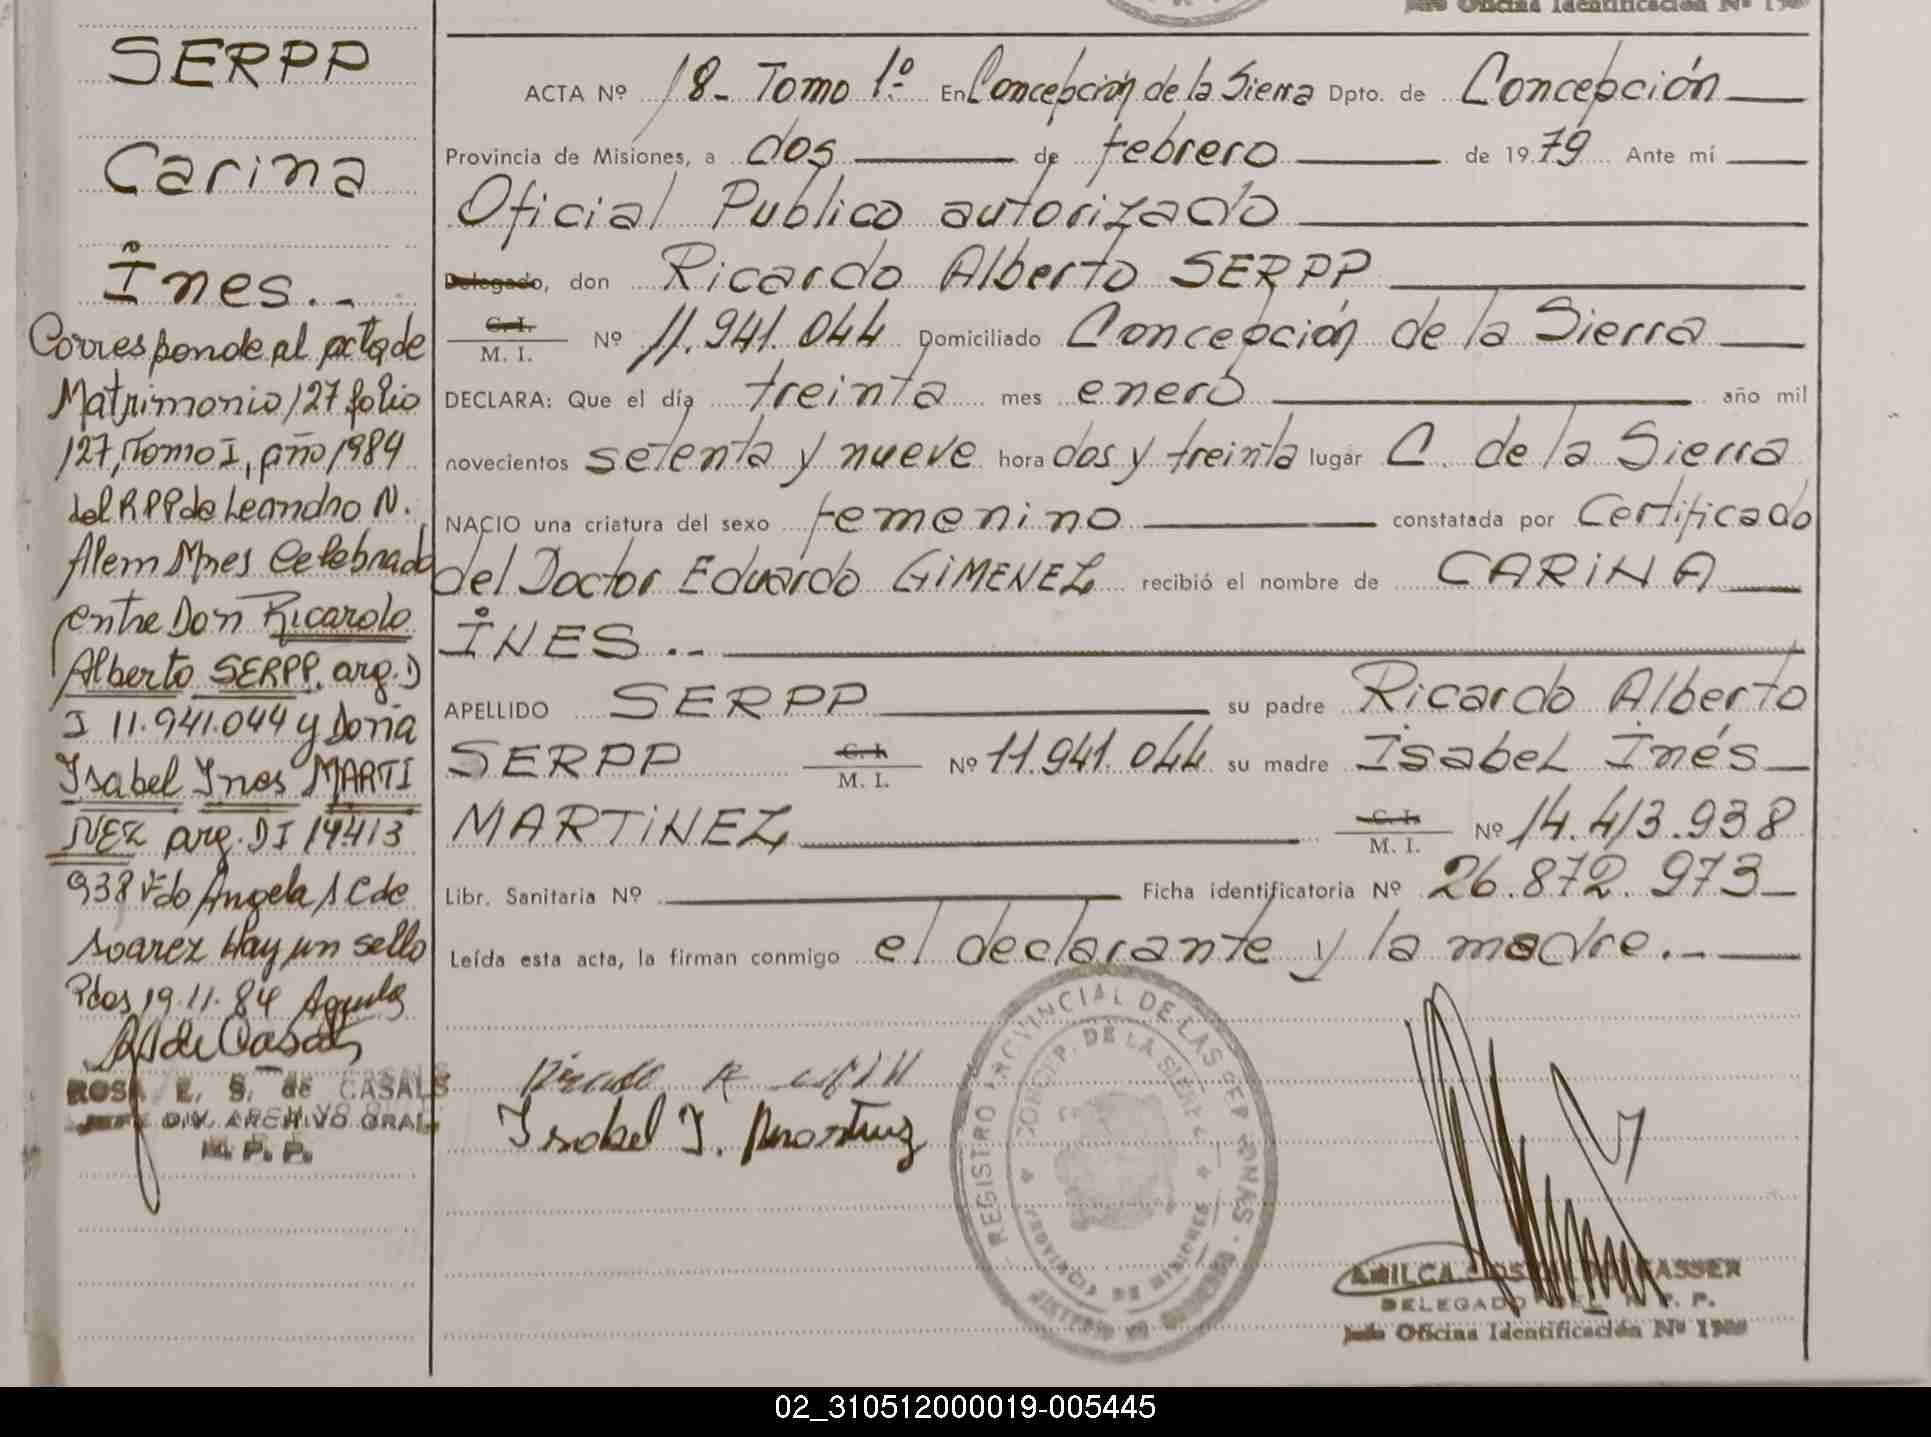 Jefe Oficina Identificación Nº
SERPP
Carina
Ines.-
Corresponde al acta de
Matrimonio 127 folio
127, Tomo I, año 1984
del RPP de Leandro N.
Alem Mnes Celebrado
entre Don Ricardo
Alberto SERPP. arg. D
I 11.941.044 y Doña
Isabel Ines MARTI
NEZ arg. DI 14413
938 Fdo Angela S C de
Soarez Hay un sello
Pdas 19.11.84
ROSA E. S. de CASALS
JEFE DIV. ARCHIVO GRAL.
R. P. P.
ACTA Nº 18- Tomo 1º En Concepción de la Sierra Dpto. de Concepción
Provincia de Misiones, a dos de febrero de 1979 Ante mí
Oficial Publico autorizado
Delegado, don Ricardo Alberto SERPP
C. I.
M. I. Nº 11.941.044 Domiciliado Concepción de la Sierra
DECLARA: Que el día treinta mes enero año mil
novecientos setenta y nueve hora dos y treinta lugar C. de la Sierra
NACIO una criatura del sexo femenino constatada por Certificado
del Doctor Eduardo GIMENEZ recibió el nombre de CARINA
INES.-
APELLIDO SERPP su padre Ricardo Alberto
SERPP C. I. M. I. Nº 11.941.044 su madre Isabel Inés
MARTINEZ C. I. M. I. Nº 14.413.938
Libr. Sanitaria Nº Ficha identificatoria Nº 26.872.973
Leída esta acta, la firman conmigo el declarante y la madre.-
Isabel I. Martinez
REGISTRO PROVINCIAL DE LAS PERSONAS
CONCEP. DE LA SIERRA
PROVINCIA DE MISIONES
DELEGADO DEL R. P. P.
Jefe Oficina Identificación Nº
02_310512000019-005445